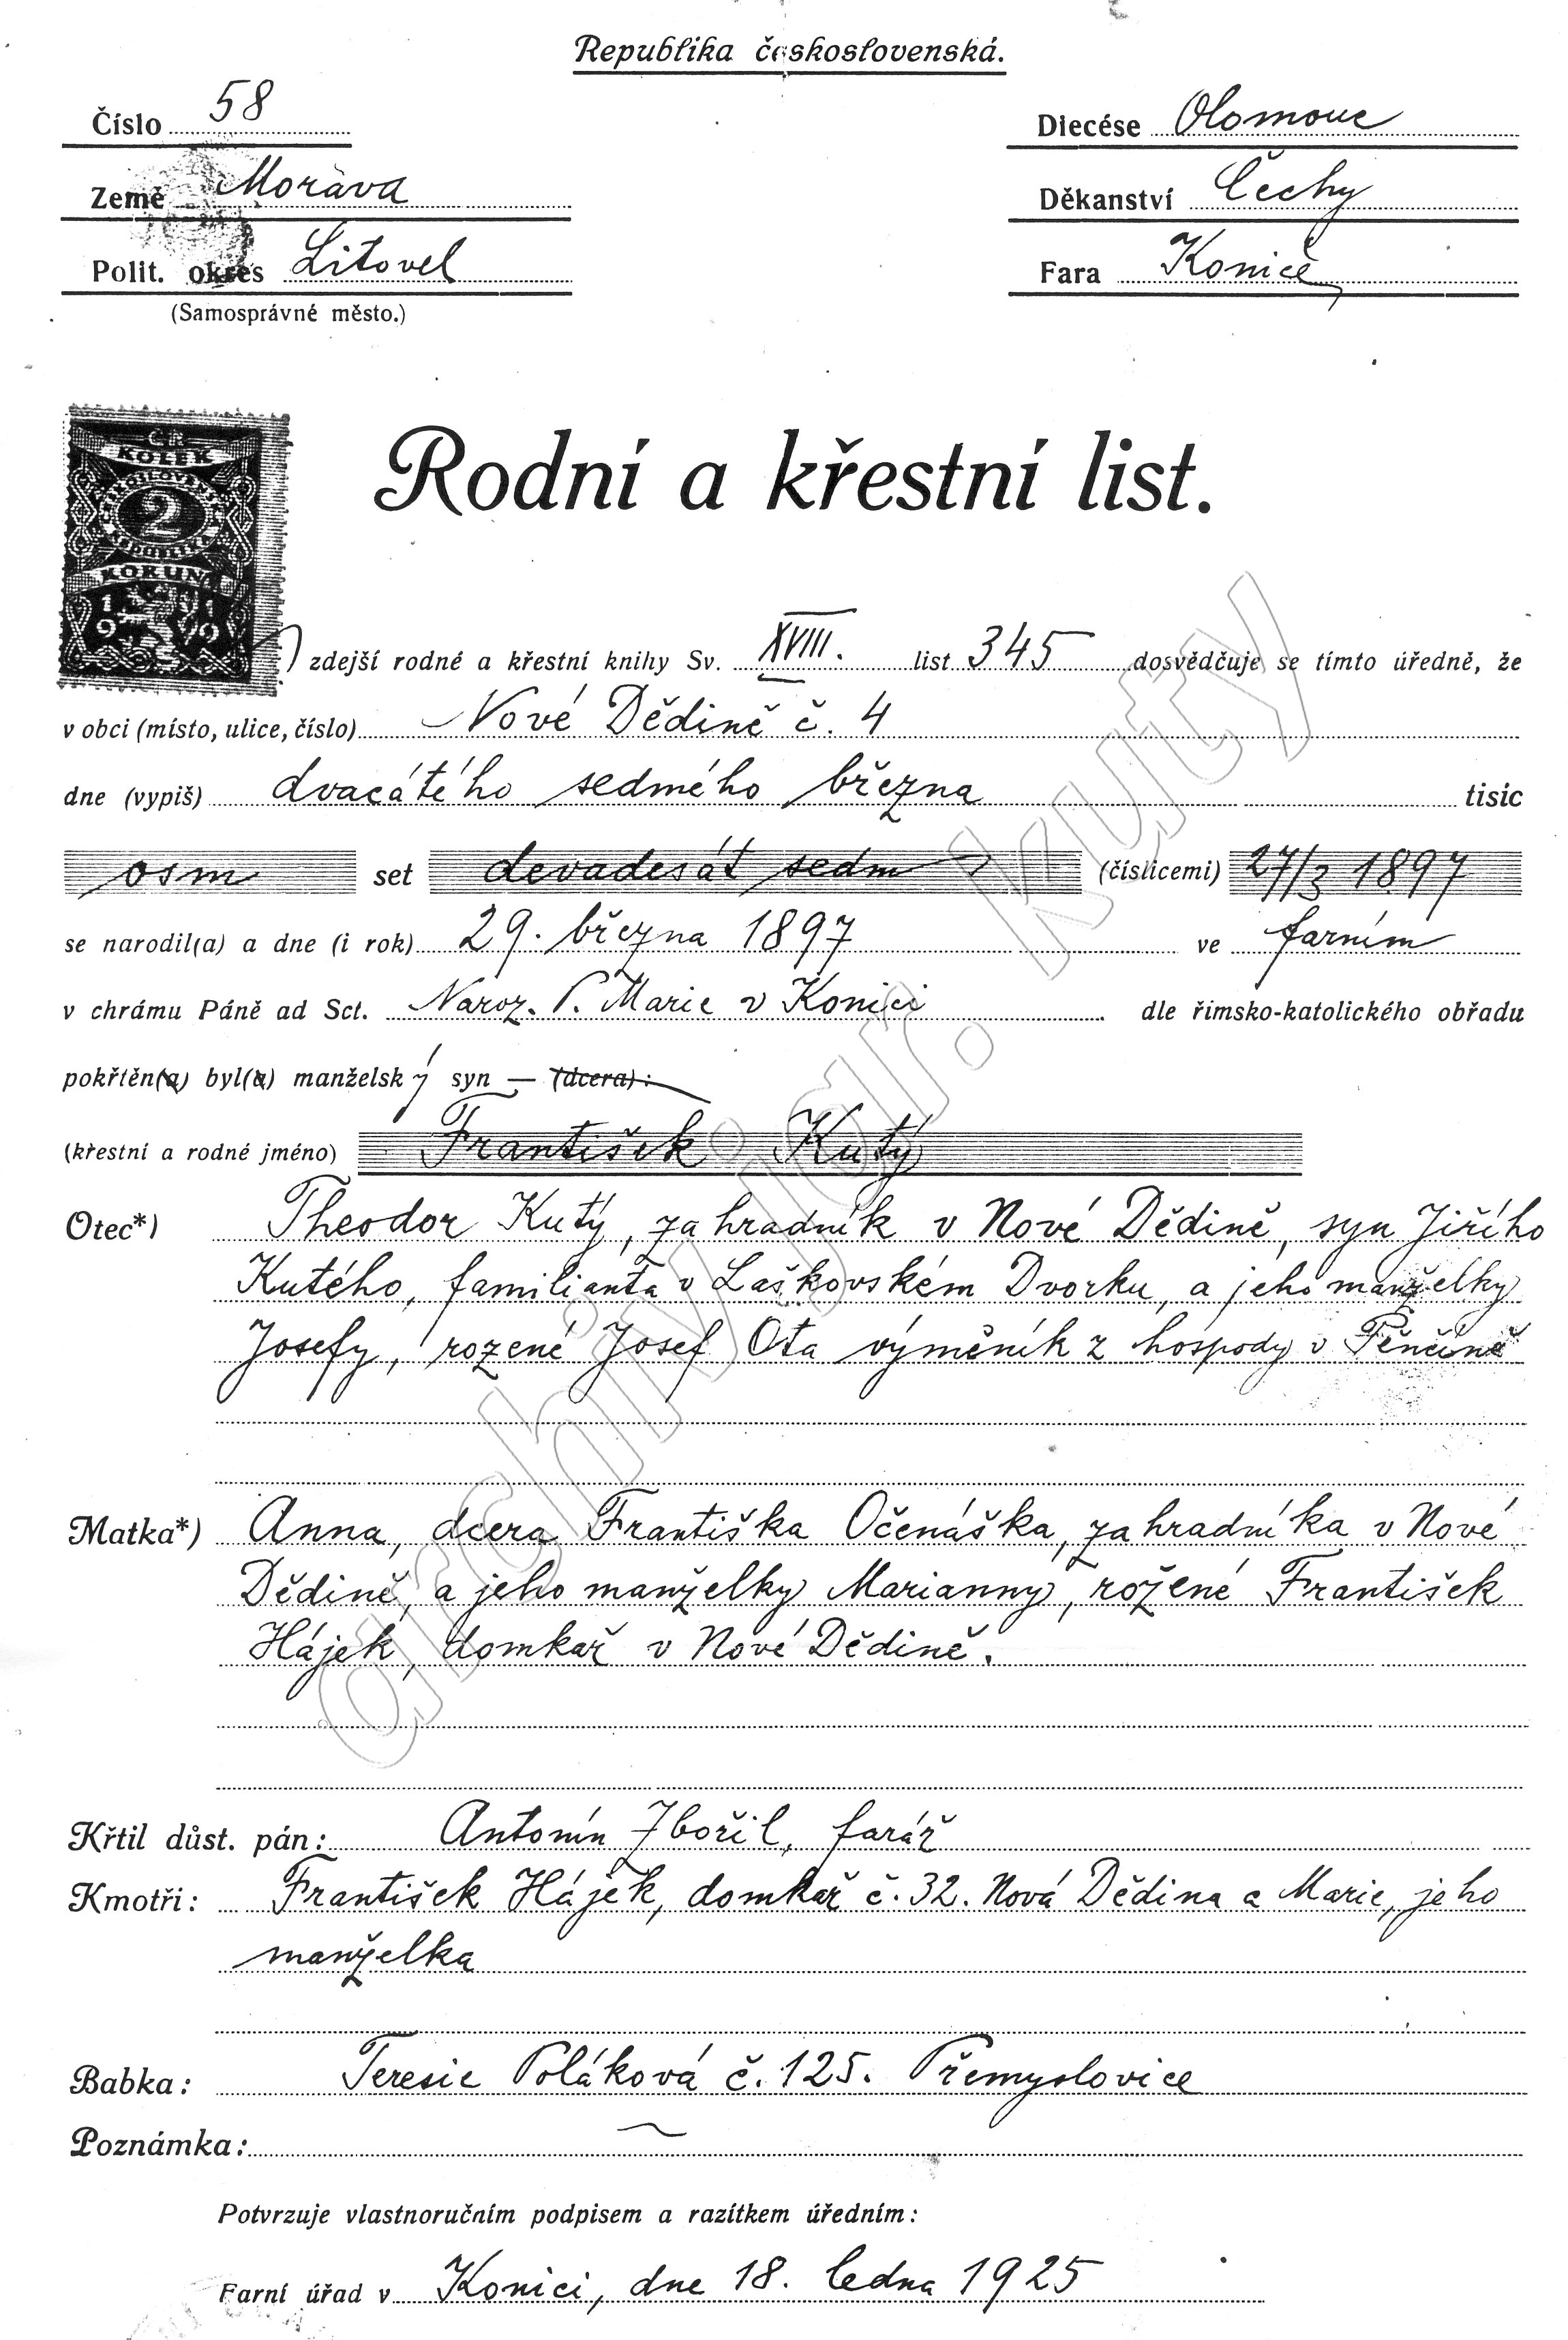 Republika československá.
Číslo 58
Diecése Olomouc
Země Morava
Děkanství Čechy
Polit. okres Litovel
Fara Konice
(Samosprávné město.)
ČR
KOLEK
ČESKOSLOVENSKÁ
2
REPUBLIKA
KORUNY
1919
Rodní a křestní list.
zdejší rodné a křestní knihy Sv. XVIII. list 345 dosvědčuje se tímto úředně, že
v obci (místo, ulice, číslo) Nové Dědině č. 4
dne (vypiš) dvacátého sedmého března tisíc
osm set devadesát sedm (číslicemi) 27/3 1897
se narodil(a) a dne (i rok) 29. března 1897 ve farním
v chrámu Páně ad Sct. Naroz. P. Marie v Konici dle římsko-katolického obřadu
pokřtěn(a) byl(a) manželský syn — (dcera):
(křestní a rodné jméno) František Kutý
Otec*) Theodor Kutý, zahradník v Nové Dědině, syn Jiřího
Kutého, familianta v Laškovském Dvorku, a jeho manželky
Josefy, rozené Josef Ota výměník z hospody v Pěnčíně
Matka*) Anna, dcera Františka Očenáška, zahradníka v Nové
Dědině, a jeho manželky Marianny, rožené František
Hájek, domkař v Nové Dědině.
Křtil důst. pán: Antonín Zbořil, farář
Kmotři: František Hájek, domkař č. 32. Nová Dědina a Marie, jeho
manželka
Babka: Teresie Poláková č. 125. Přemyslovice
Poznámka: ~
Potvrzuje vlastnoručním podpisem a razítkem úředním:
Farní úřad v Konici, dne 18. ledna 1925
archiv jar. kuty